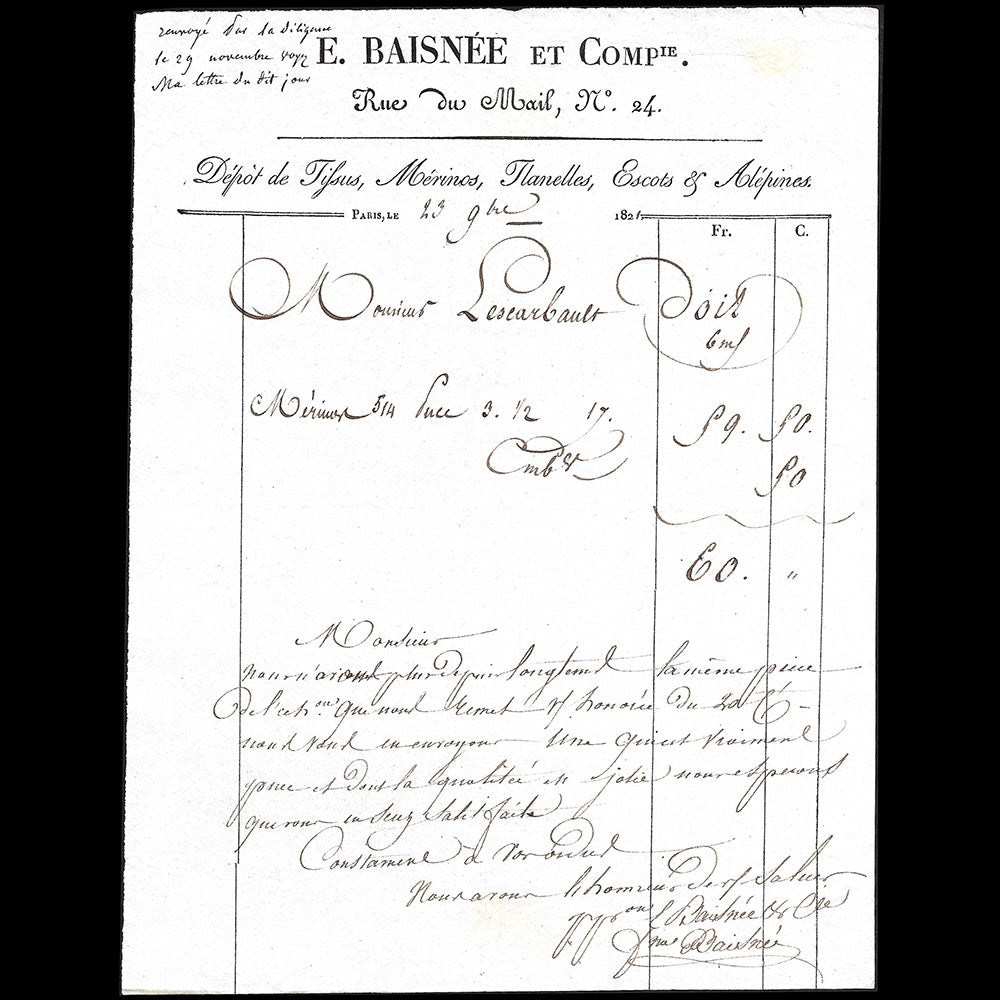 renvoyé par la diligence
le 29 novembre
Ma lettre du dit jour
E. BAISNÉE ET COMPIE.
Rue du Mail, N°. 24.
Dépôt de Tissus, Mérinos, Flanelles, Escots & Alépines.
PARIS, LE 23 9bre 1821.
Fr. C.
Monsieur Lescarbault Doit
6 m/
Mérinos 5/4 Puce 3. 1/2 17. 59. 50.
Embge 50
60. "
Monsieur
nous n'avons plus depuis longtems la même puce
De l'echon que nous remet v/ honorée du 20 Ct
nous vous en envoyons une qui est vraiment
puce et dont la qualité est jolie nous esperons
que vous en serez satisfaite
Constament à vos ordres
Nous avons l'honneur de v/ saluer
pp on E Baisnée & Cie
Baisnée